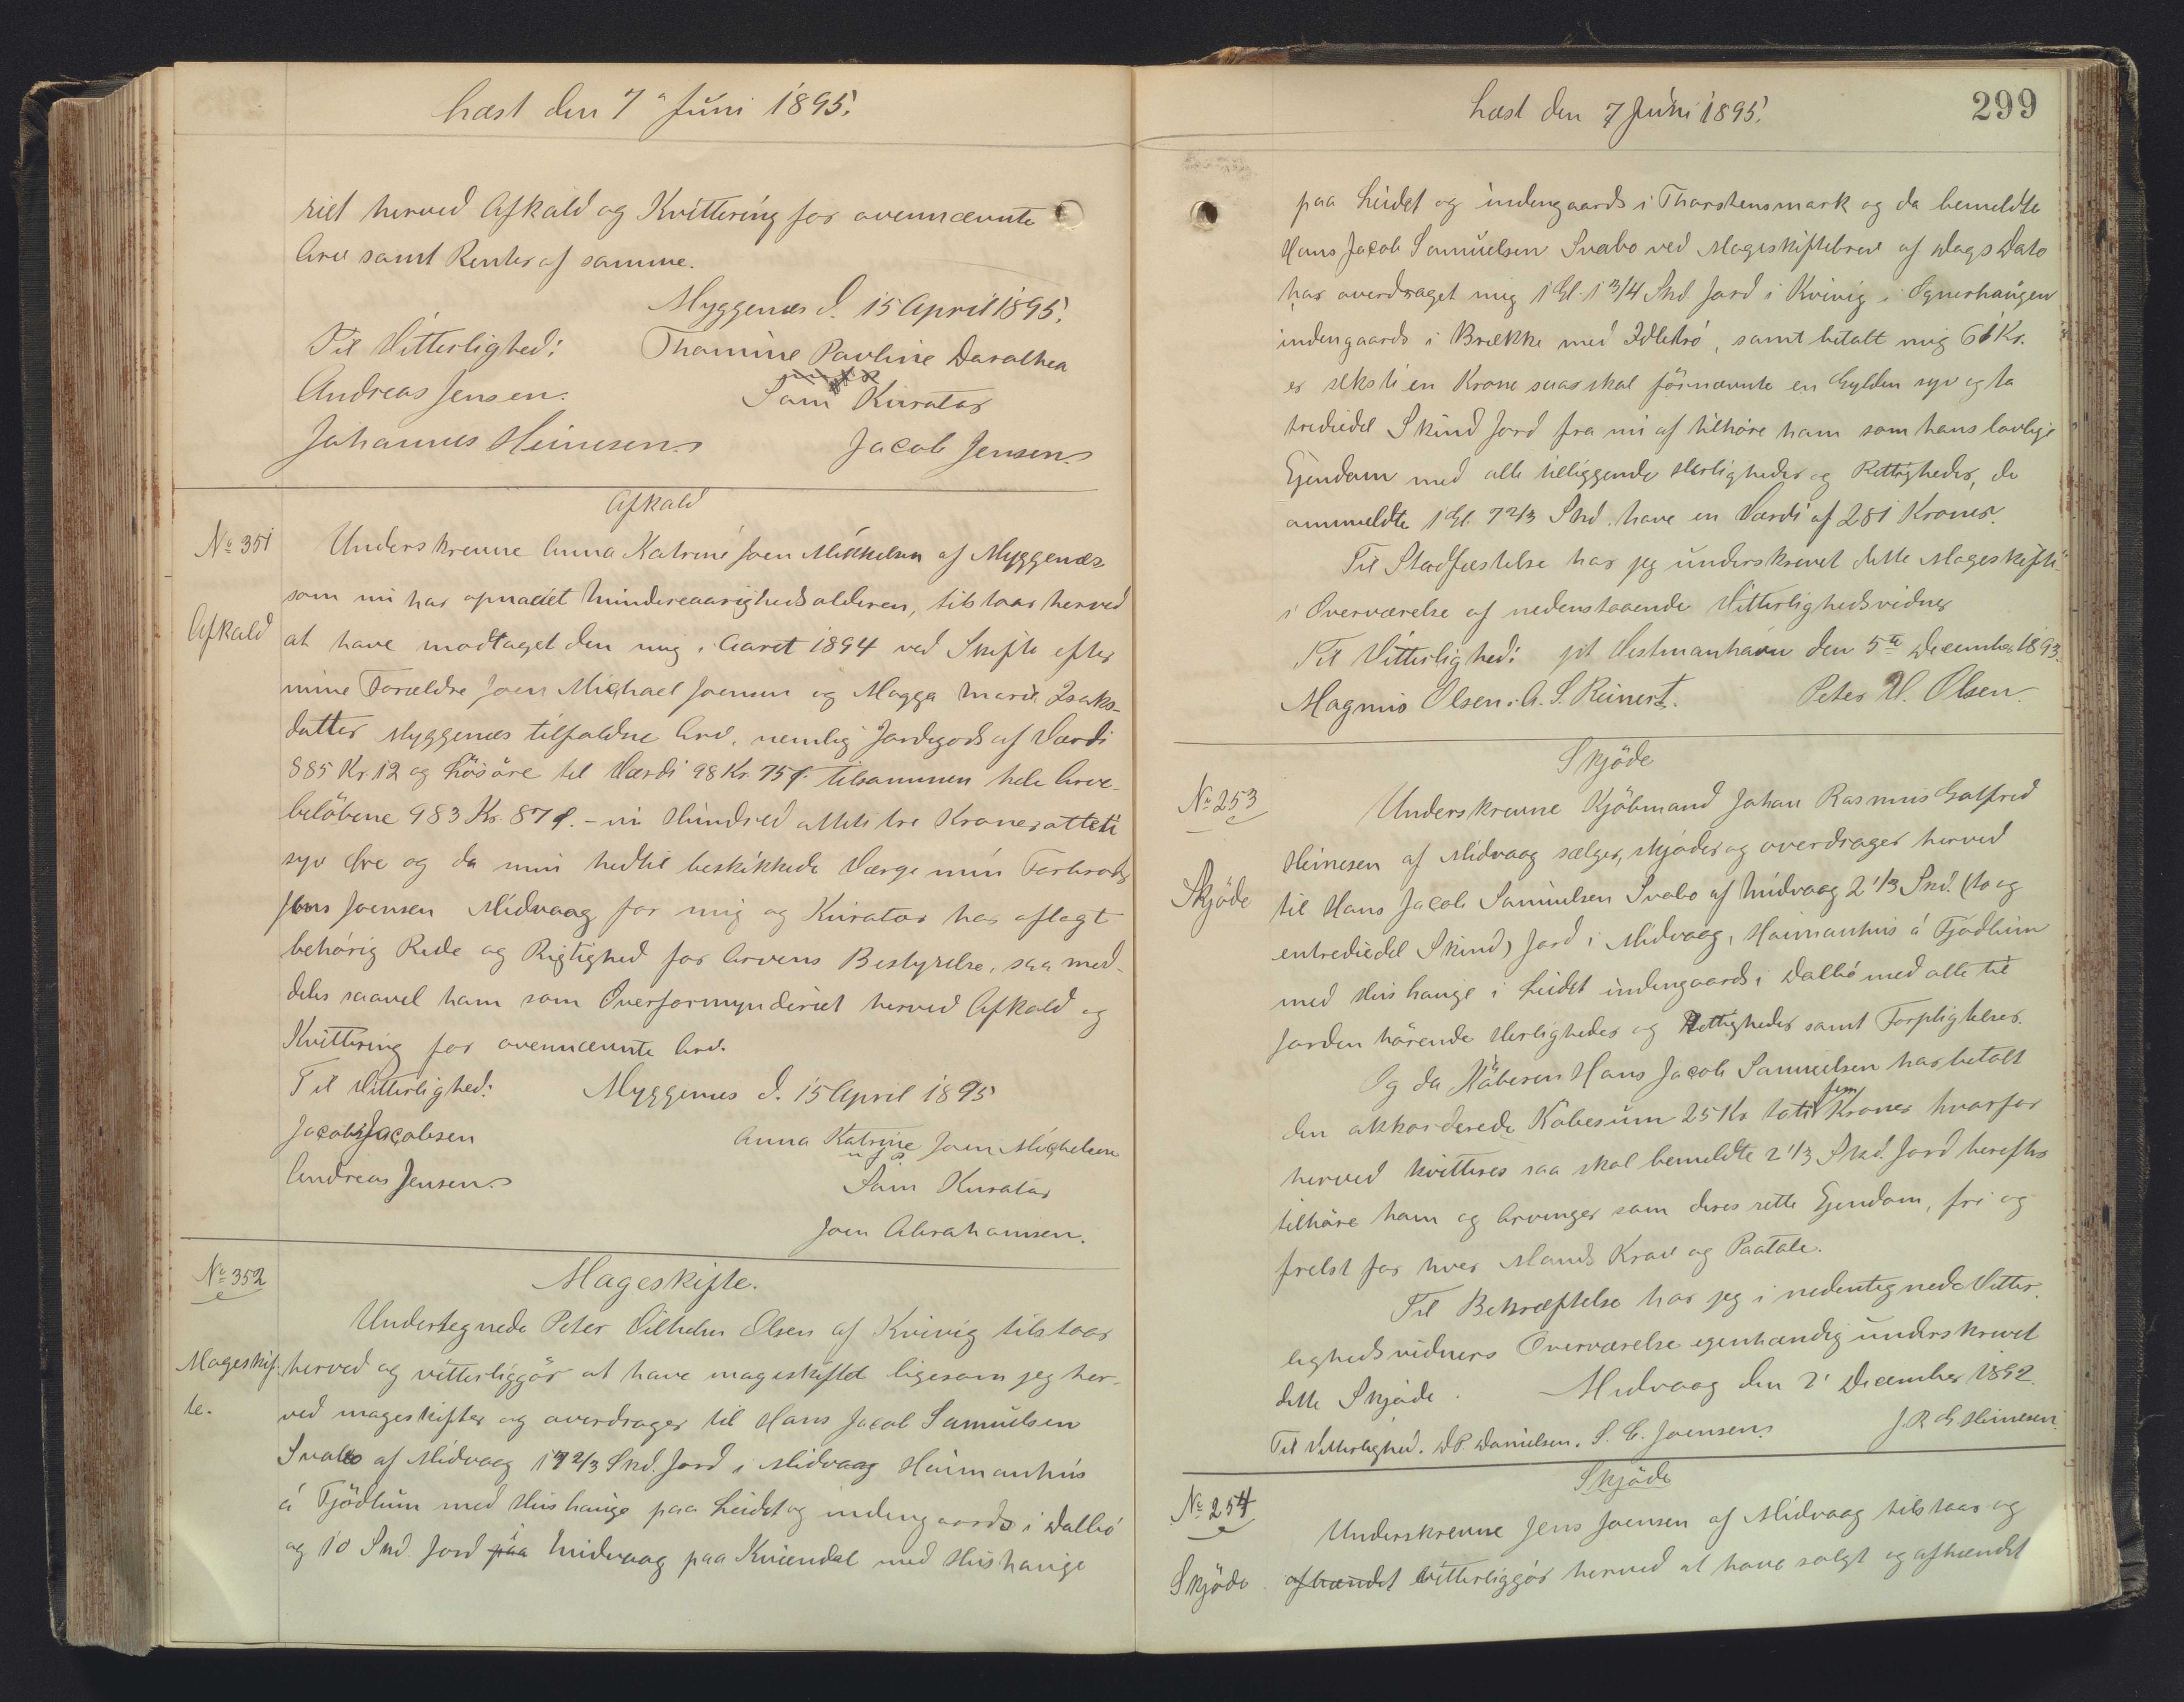 Læst den 7 Juni 1895.
riet herved Afkald og Kvittering for ovennævnte
Arv samt Renter af samme.
Myggenæs d. 15 April 1895.
Til Vitterlighed: Thomine Pauline Dorothea
Andreas Jensen. Som Kurator
Johannes Heinesen Jacob Jensen
Afkald
No 351 Underskrevne Anna Katrine Joen Mikkelsen af Myggenæs
som nu har opnaaet Mindreaarighedsalderen, tilstaar herved
Afkald at have modtaget den mig i Aaret 1894 ved Skifte efter
mine Forældre Joen Michael Joensen og Magga Marie Isaks-
datter Myggenæs tilfaldne Arv, nemlig Jordegods af Værdi
885 Kr. 12 og Løsøre til Værdi 98 Kr. 75 Ø. tilsammen hele Arve-
beløbene 983 Kr. 87 Ø. - ni Hundred otteti tre Kroner otteti
syv Øre og da min hedtil beskikkede Værge min Farbroder
Jens Joensen Midvaag for mig og Kurator har aflagt
behørig Rede og Rigtighed for Arvens Bestyrelse, saa med-
deles saavel ham som Overformynderiet herved Afkald og
Kvittering for ovennævnte Arv.
Til Vitterlighed: Myggenæs d. 15 April 1895
Jacob Jacobsen Anna Katrine Joen Mighelsen
m f P
Andreas Jensen Som Kurator
Joen Abrahamsen.
No 352 Mageskifte.
Undertegnede Peter Vilhelm Olsen af Kvivig tilstaar
Mageskif- herved og vitterliggør at have mageskiftet ligesom jeg her-
te. ved mageskifter og overdrager til Hans Jacob Samuelsen
Svabo af Midvaag 17 2/3 Snd. Jord i Midvaag Heimanhus
á Fjødlum med Hushauge paa Leidet og indengaards i Dalbø
og 10 Snd. Jord paa Midvaag paa Kviendal med Hushauge
Læst den 7 Juni 1895. 299
paa Leidet og indengaards i Thorstensmark og da bemeldte
Hans Jacob Samuelsen Svabo ved Mageskiftebrev af Dags Dato
har overdraget mig 1 Gl. 1 3/4 Snd. Jord i Kvivig i Ognerhaugen
indengaards i Brekke med Idletrø, samt betalt mig 61 Kr.
er seksti en Krone saa skal førnævnte en Gylden syv og to
trediedel Skind Jord fra nu af tilhøre ham som hans lovlige
Ejendom med alle tilliggende Herligheder og Rettigheder, de
ommeldte 1 Gl. 7 2/3 Snd. have en Værdi af 281 Kroner.
Til Stadfæstelse har jeg underskrevet dette Mageskifte
i Overværelse af nedenstaaende Vitterlighedsvidner
Til Vitterlighed: pt Vestmanhavn den 5te December 1893.
Magnus Olsen. A. S. Reinert. Peter W. Olsen
Skjøde
No 253 Underskrevne Kjøbmand Johan Rasmus Gotfred
Heinesen af Midvaag sælger, skjøder og overdrager herved
Skjøde til Hans Jacob Samuelsen Svabo af Midvaag 2 1/3 Snd. (to og
entrediedel Skind) Jord i Midvaag, Heimanhus á Fjødlum
med Hushauge i Leidet indengaards i Dalbø med alle til
Jorden hørende Herligheder og Rettigheder samt Forpligtelser.
Og da Køberen Hans Jacob Samuelsen har betalt
den akkorderede Købesum 25 Kr. toti fem Kroner hvorfor
herved kvitteres saa skal bemeldte 2 1/3 Snd. Jord herefter
tilhøre ham og Arvinger som deres rette Ejendom, fri og
frelst for hver Mands Krav og Paatale.
Til Bekræftelse har jeg i nedentegnede Vitter-
lighedsvidners Overværelse egenhændig underskrevet
dette Skjøde. Midvaag den 2 December 1892.
Til Vitterlighed. D.P. Danielsen. S. C. Joensen J R G Heinesen
Skjøde
No 254 Underskrevne Jens Joensen af Midvaag tilstaar og
Skjøde afhændet vitterliggør herved at have solgt og afhændet